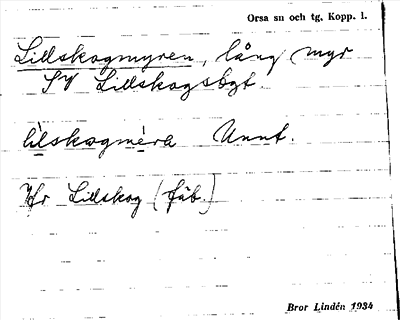 Orsa sn och tg, Kopp. l.
Lidskogmyren, lång myr
SV Lidskogsbgt.
lìlskogmèra Unnt.
Hr Lidskog (fäb.)
Bror Lindén 1934